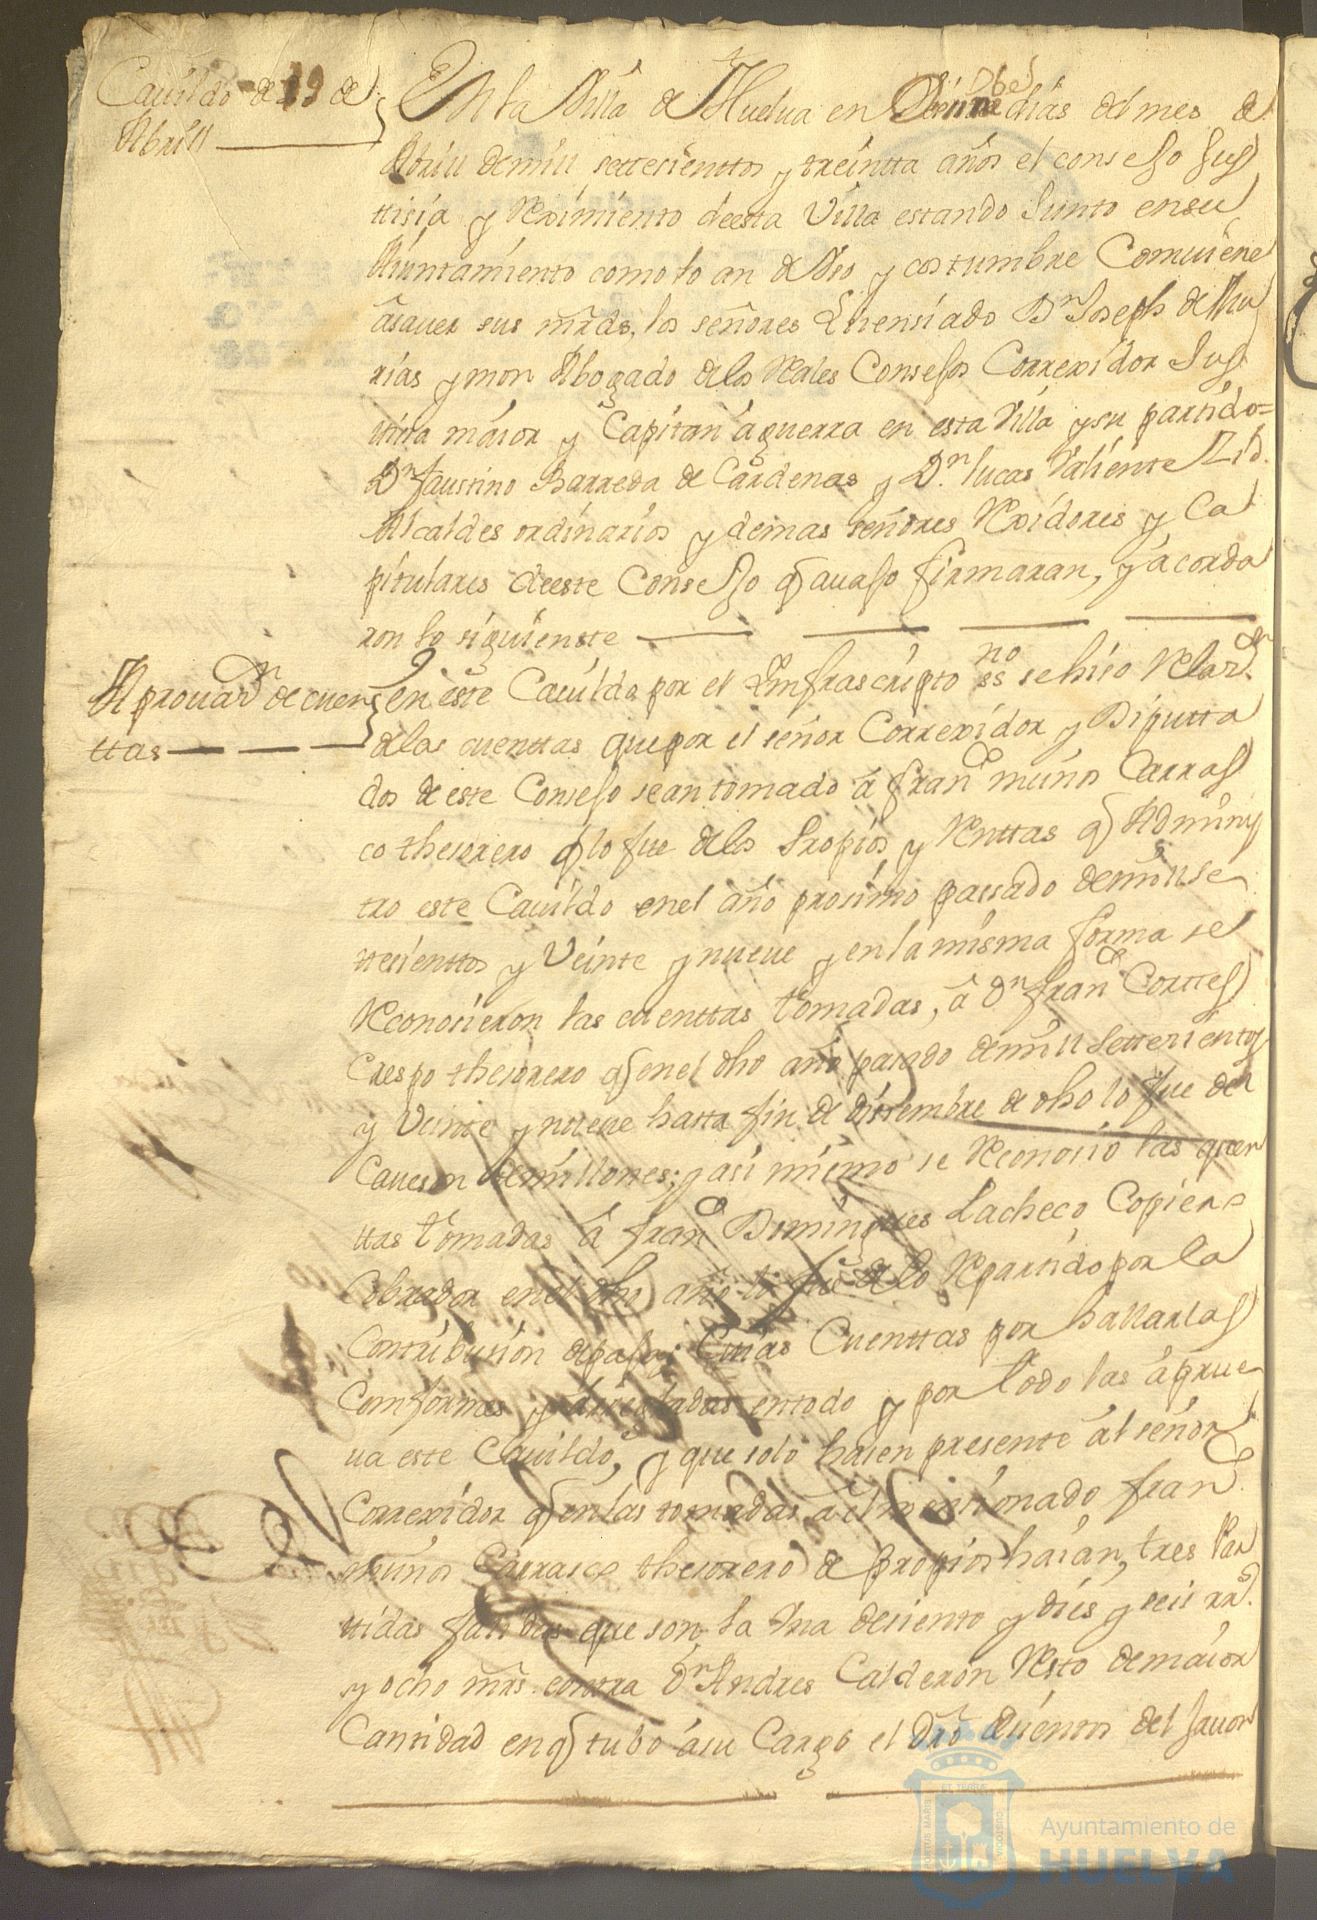 Cauildo de 19 de
Abrill
En la Villa de Huelua en dias del mes de
Abrill de mill settesienttos y treintta años el consejo Jus
ttisia y Reximiento de esta Villa estando Junto en su
Aiuntamiento como lo an de Uso y costumbre Comuiene
a sauer sus mrds. los señores Lisensiado Dn Joseph de
rias y mon Abogado de los Reales Consejos Correxidor Jus
ttisia maior y Capitan a guerra en esta Villa y su partido=
Dn faustino Barreda de Cardenas y Dn. lucas Valiente
Alcaldes ordinarios y demas señores Rexidores y Ca
pitulares de este Consejo q auajo firmaran, y acorda
ron lo siguienste
Aprouazn de cuen
ttas
en este Cauildo por el Infrascripto ssno se hiso Relazn
de las cuenttas que por el señor Correxidor y Diputta
dos de este Consejo se an tomado a franco muños Carras
co thesorero q lo fue de los Propios y Renttas q Adminis
tro este Cauildo en el año prosimo passado de mill se
ttesienttos y Veinte y nueue y en la misma forma se
Reconosieron las cuenttas tomadas, a Dn franco Corttes
Crespo thesorero q en el dho año pasado de mill settesientos
y Veinte y nueue hasta fin de dissiembre de dho lo fue del
Caueson de millones; y asi mismo se Reconosio las quen
ttas tomadas a franco Domingues Pacheco Copiero
Cobrador en el dho año lo fue de lo Repartido por la
Contribusion de paja; Cuias Cuenttas por hallarlas
Comformes y en todo y por todo las aprue
ua este Cauildo, y que solo hasen presente al señor
Correxidor q en las tomadas a el mensionado franco
muños Carrasco thesorero de propios haian, tres Par
ttidas fallidas que son la Una de siento y dies y seis rrs.
y ocho mrs. contra Dn Andres Calderon Resto de maior
Cantidad en q tubo a su Cargo el dro del jauon
Ayuntamiento de
HUELVA